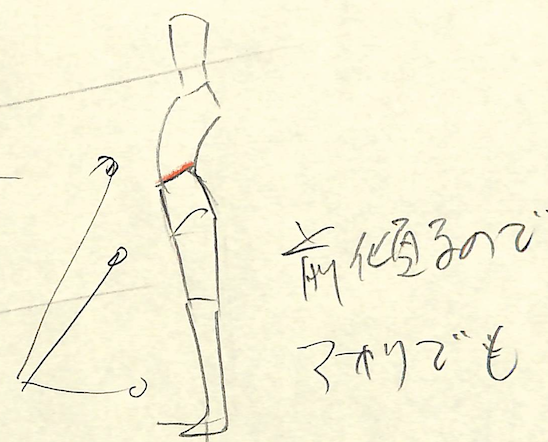 前傾るので
アオリでも